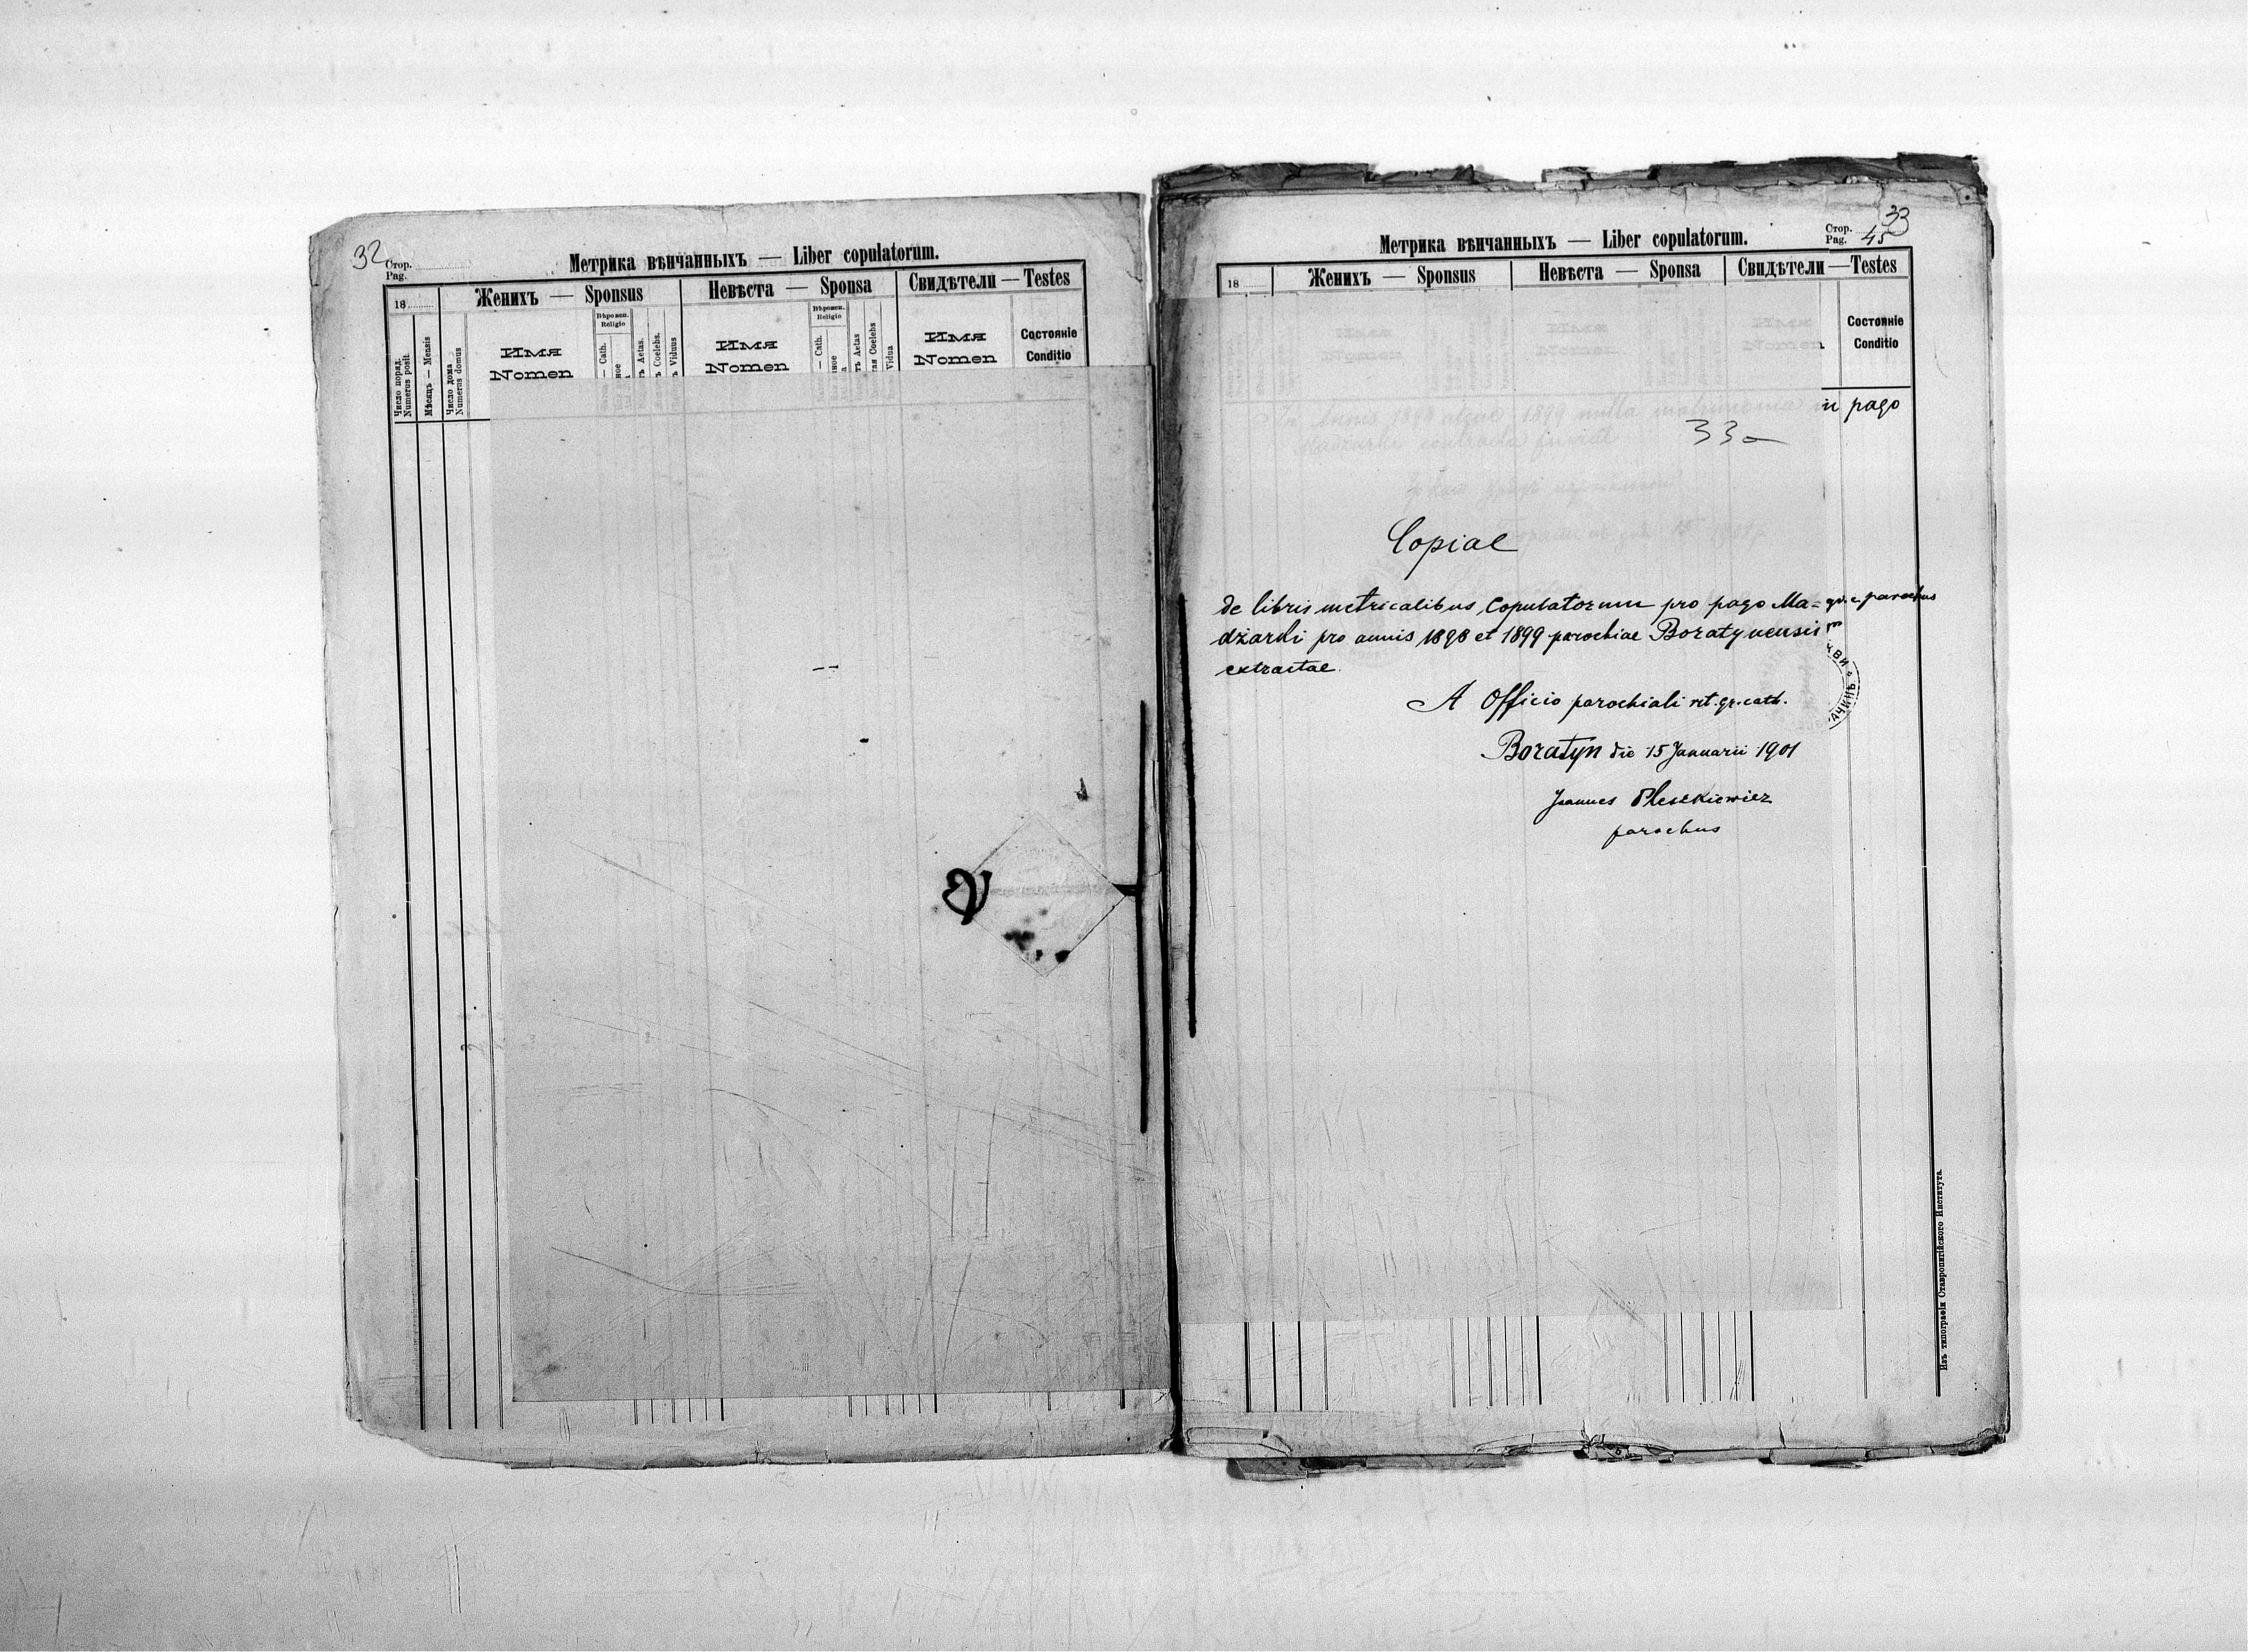 32
Стор.
Pag.
Метрика вѣнчанныхъ — Liber copulatorum.
18
Женихъ — Sponsus
Невѣста — Sponsa
Свидѣтели — Testes
Число поряд.
Numerus posit.
Мѣсяцъ — Mensis
Число дома
Numerus domus
Имя
Nomen
Вѣроисп.
Religio
— Cath.
Aetas.
Coelebs.
Viduus
Имя
Nomen
Вѣроисп.
Religio
— Cath.
Aetas
Coelebs
Vidua
Имя
Nomen
Состояніе
Conditio
33
Стор.
Pag. 45
Метрика вѣнчанныхъ — Liber copulatorum.
18
Женихъ — Sponsus
Невѣста — Sponsa
Свидѣтели — Testes
Состояніе
Conditio
In annis 1898 atque 1899 nulla matrimonia in pago
contracta
33a
Copiae
de libris metricalibus Copulatorum pro pago Ma=
dżarki pro annis 1898 et 1899 parochiae Boratynensis
extractae
parochus
A Officio parochiali rit. gr. cath.
Boratyn die 15 Januarii 1901
Joannes Pleszkiewicz
parochus
Изъ типографіи Ставропигійского Института.